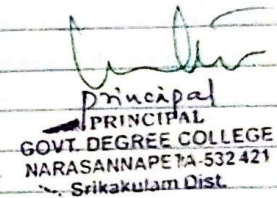 principal
PRINCIPAL
GOVT. DEGREE COLLEGE
NARASANNAPETA-532 421
Srikakulam Dist.